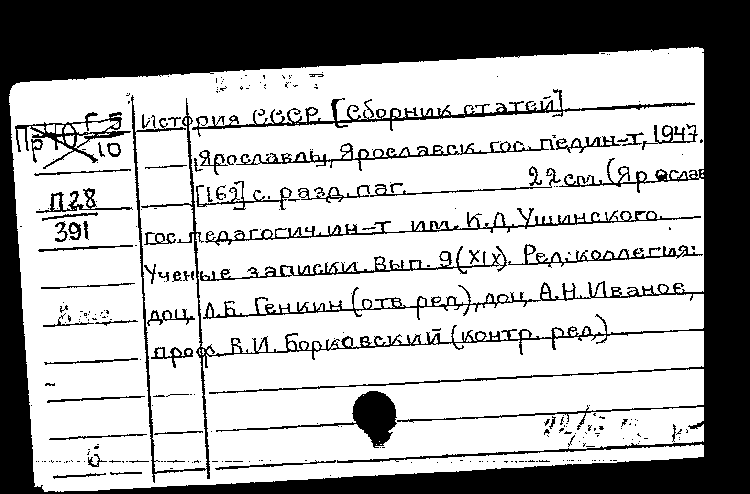 История СССР. [Сборник статей].
Ярославль, Ярославск. гос. пединс-т, 1947.
[162] с. разд. паг. 22 см. (Ярослав
гос. педагогич. ин-т им. К.Д. Ушинского.
Ученые записки. Вып. 9 (XIX). Ред. коллегия:
доц. Л.Б. Генкин (отв. ред.), доц. А.Н. Иванов,
проф. В.И. Борковский (контр. ред.)
П28
391
б